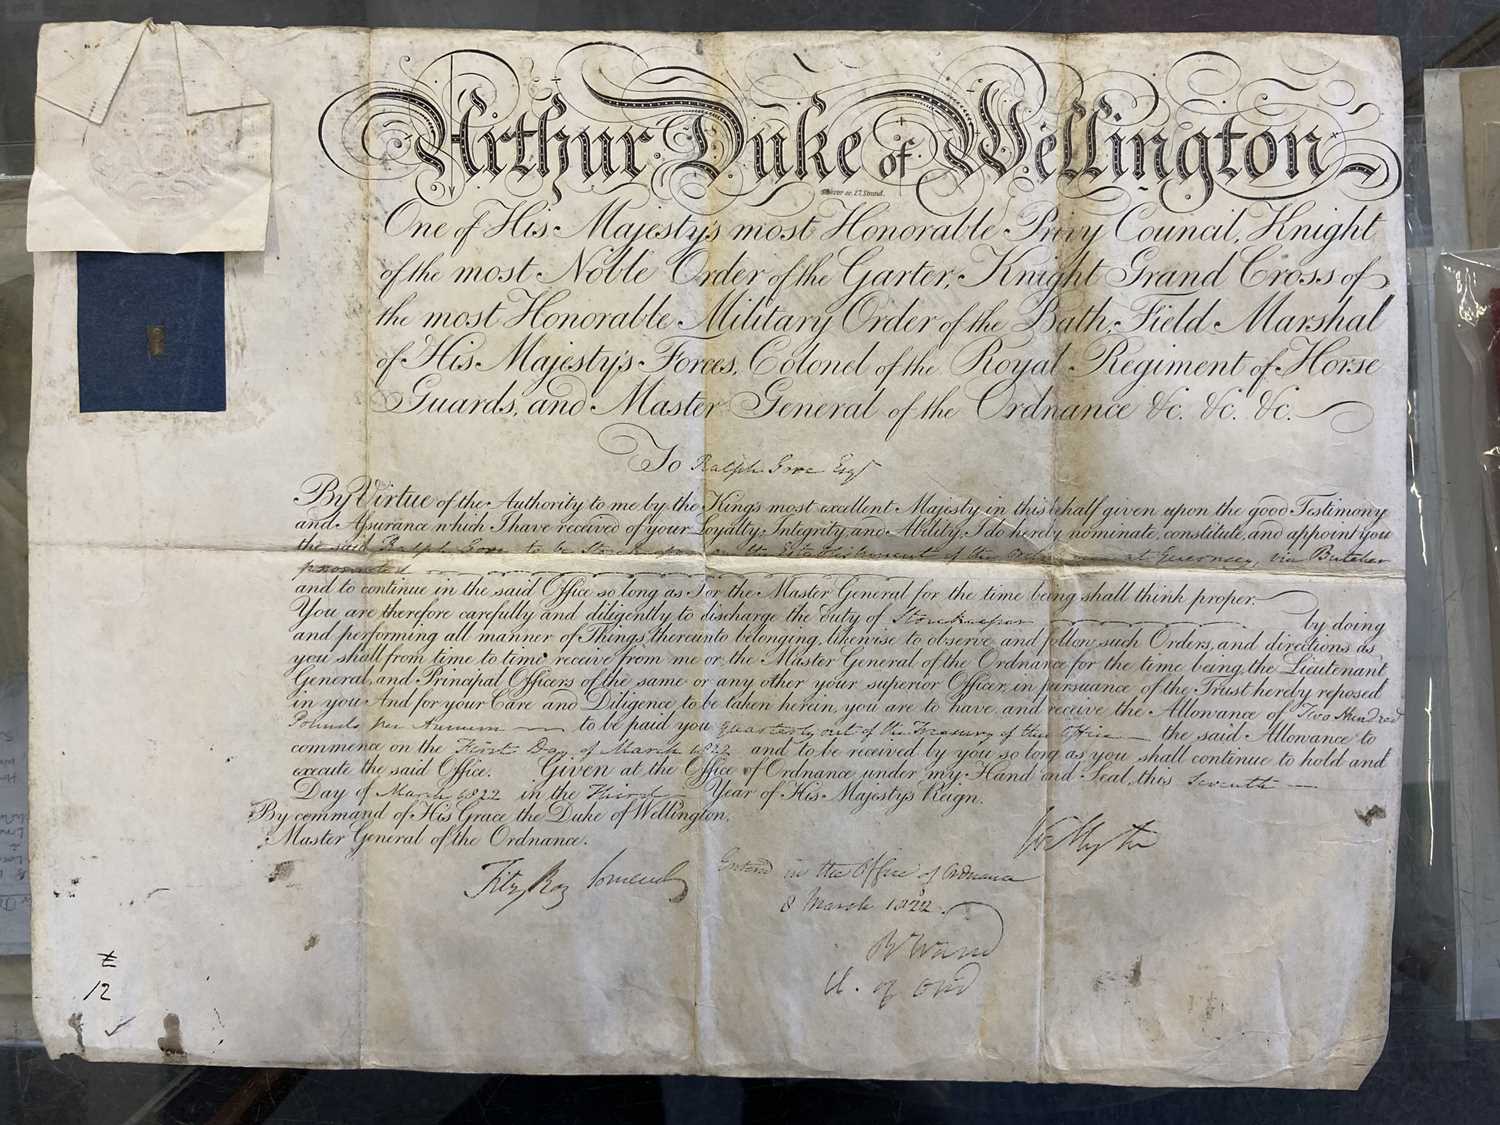 Arthur Duke of Wellington
One of His Majesty's most Honorable Privy Council, Knight
of the most Noble Order of the Garter, Knight Grand Cross of
the most Honorable Military Order of the Bath, Field Marshal
of His Majesty's Forces, Colonel of the Royal Regiment of Horse
Guards, and Master General of the Ordnance &c. &c. &c.
To Ralph Gore Esqr
By Virtue of the Authority to me by the King's most excellent Majesty in this behalf given upon the good Testimony
and Assurance which I have received of your Loyalty, Integrity, and Ability, I do hereby nominate, constitute, and appoint you
the said Ralph Gore to be Storekeeper on the Establishment of the Ordnance at Guernsey, via Butcher
promoted
and to continue in the said Office so long as I or the Master General for the time being shall think proper.
You are therefore carefully and diligently to discharge the duty of Storekeeper by doing
and performing all manner of Things thereunto belonging, likewise to observe and follow such Orders, and directions as
you shall from time to time receive from me or the Master General of the Ordnance for the time being, the Lieutenant
General, and Principal Officers of the same or any other your superior Officer, in pursuance of the Trust hereby reposed
in you And for your Care and Diligence, to be taken herein, you are to have and receive the Allowance of Two Hundred
Pounds per Annum to be paid you quarterly out of the Treasury of this Office the said Allowance to
commence on the First Day of March 1822 and to be received by you so long as you shall continue to hold and
execute the said Office. Given at the Office of Ordnance under my Hand and Seal, this Seventh
Day of March 1822 in the Third Year of His Majesty's Reign.
By command of His Grace the Duke of Wellington,
Master General of the Ordnance.
FitzRoy Somerset
Entered in the Office of Ordnance
8 March 1822
of Ord
12